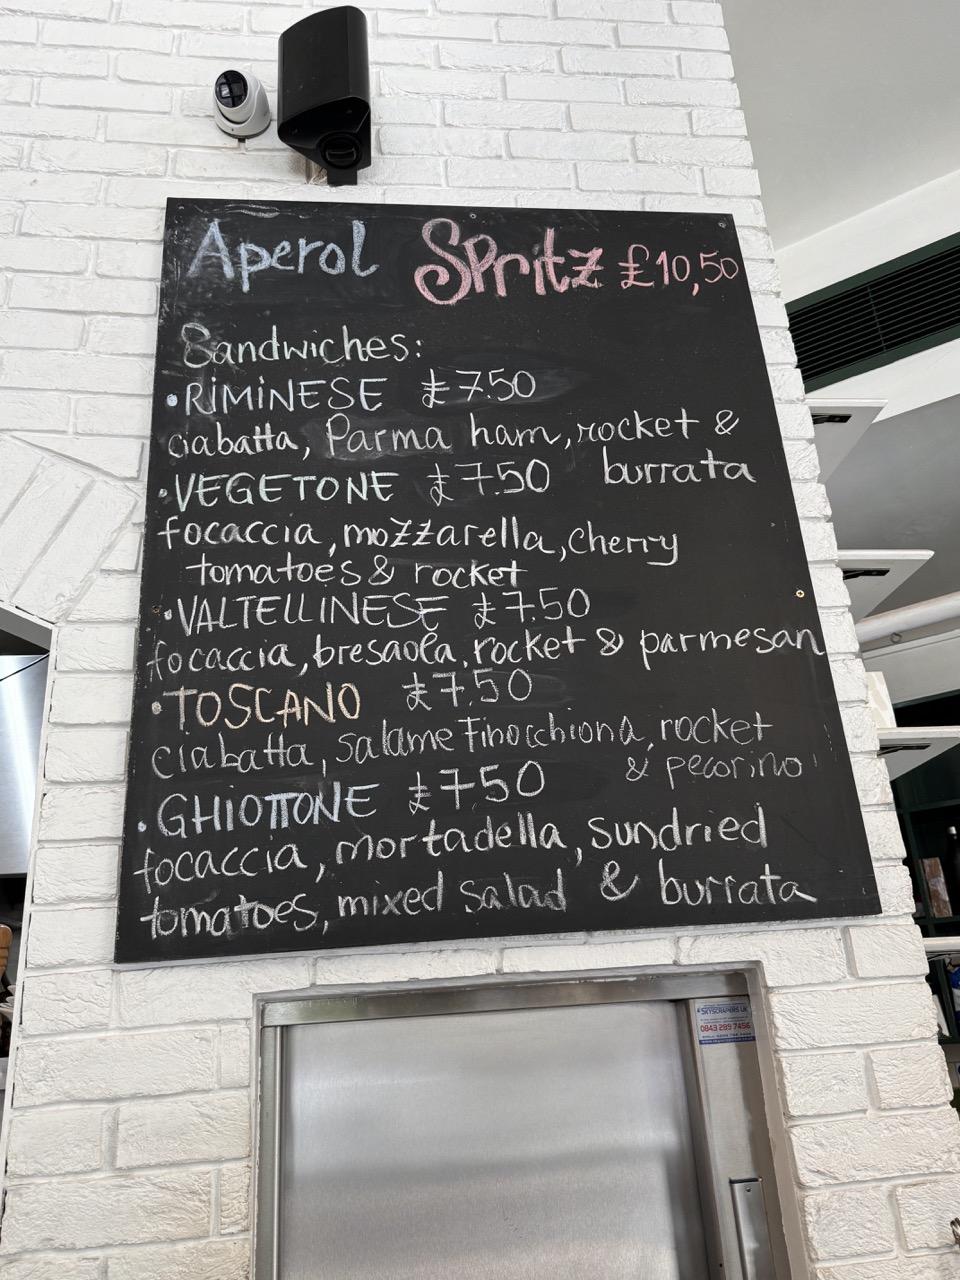 Aperol Spritz £10,50
Sandwiches:
• RIMINESE £7.50
ciabatta, Parma ham, rocket &
burrata
• VEGETONE £7.50
focaccia, mozzarella, cherry
tomatoes & rocket
• VALTELLINESE £7.50
focaccia, bresaola, rocket & parmesan
• TOSCANO £7.50
ciabatta, salame Finocchiona, rocket
& pecorino
• GHIOTTONE £7.50
focaccia, mortadella, sundried
tomatoes, mixed salad & burrata
SKYSCRAPERS UK
0843 289 7456